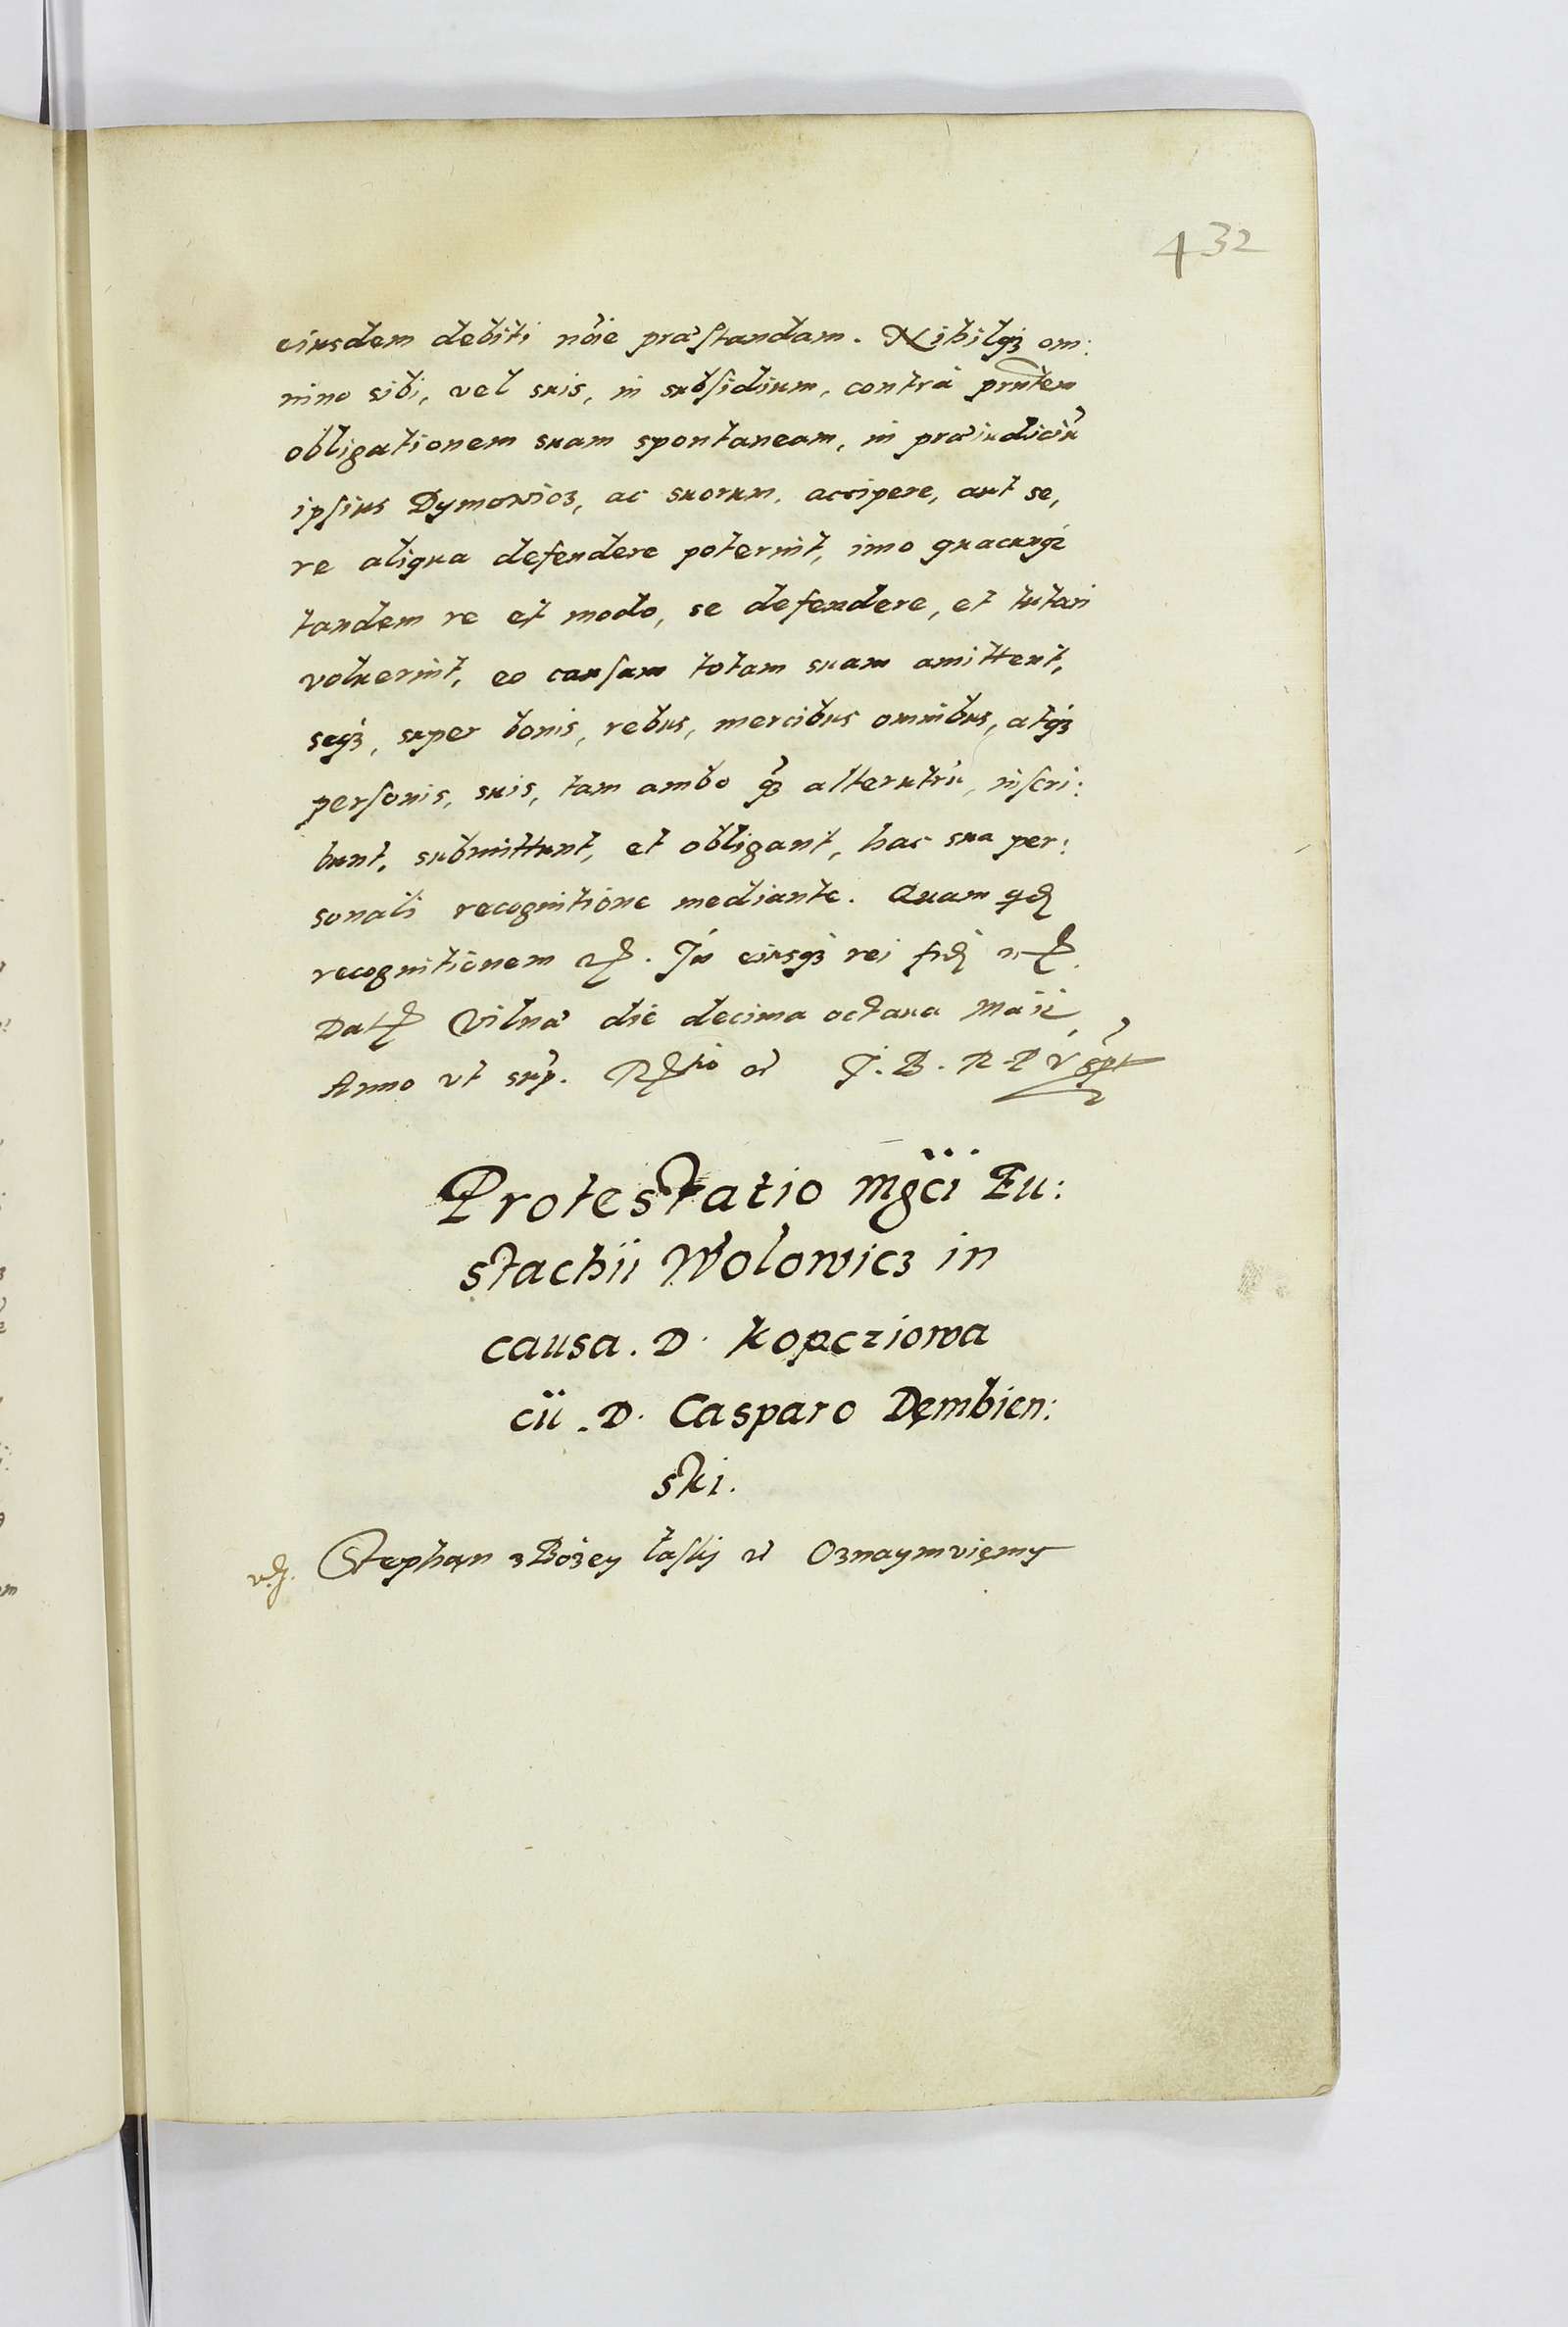 432
eiusdem debiti no͞ie præstandam. Nihilqꝫ om:
nino sibi, vel suis, in subsidium, contrà prn͞tem
obligationem suam spontaneam, in præiudiciu͂
ipsius Dymowicz, ac suorum, accipere, aut se,
re aliqua defendere poterint, imo quacunqꝫ
tandem re et modo, se defendere, et tutari
voluerint, eo causam totam suam amittent,
seqꝫ, super bonis, rebus, mercibus omnibus, atqꝫ
personis, suis, tam ambo qꝫ alterutru͂, inscri:
bunt, submittunt, et obligant, hac sua per:
sonali recognitione mediante. Quam qd
recognitionem. In eiusqꝫ rei fid
Dat Vilnæ die decima octaua Maii,
Anno vt sup. J. B. R P V
Protestatio Mgc͞i Eu:
stachii Wolowicz in
causa. D. Kopcziowa
cu͞. D. Casparo Dęmbien:
ski.
Stephąn z Bożey łasky Oznaymvięmy